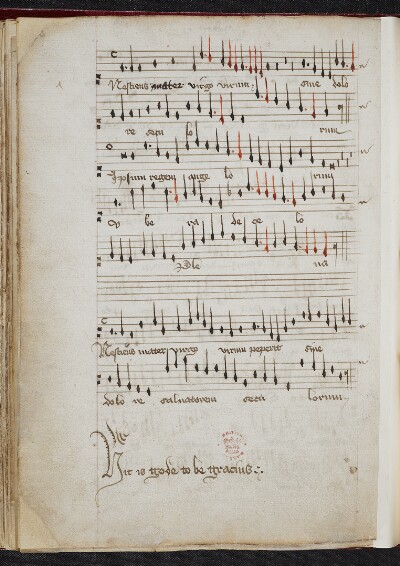 Nesciens mater virgo virum sine dolo
re secu lo rum
Ipsum regem ange lo rum
v be ra de ce lo
Ple na
Nesciens mater virgo virum peperit sine
dolo re salvatorem secu lorum
Hit is gode to be gracius